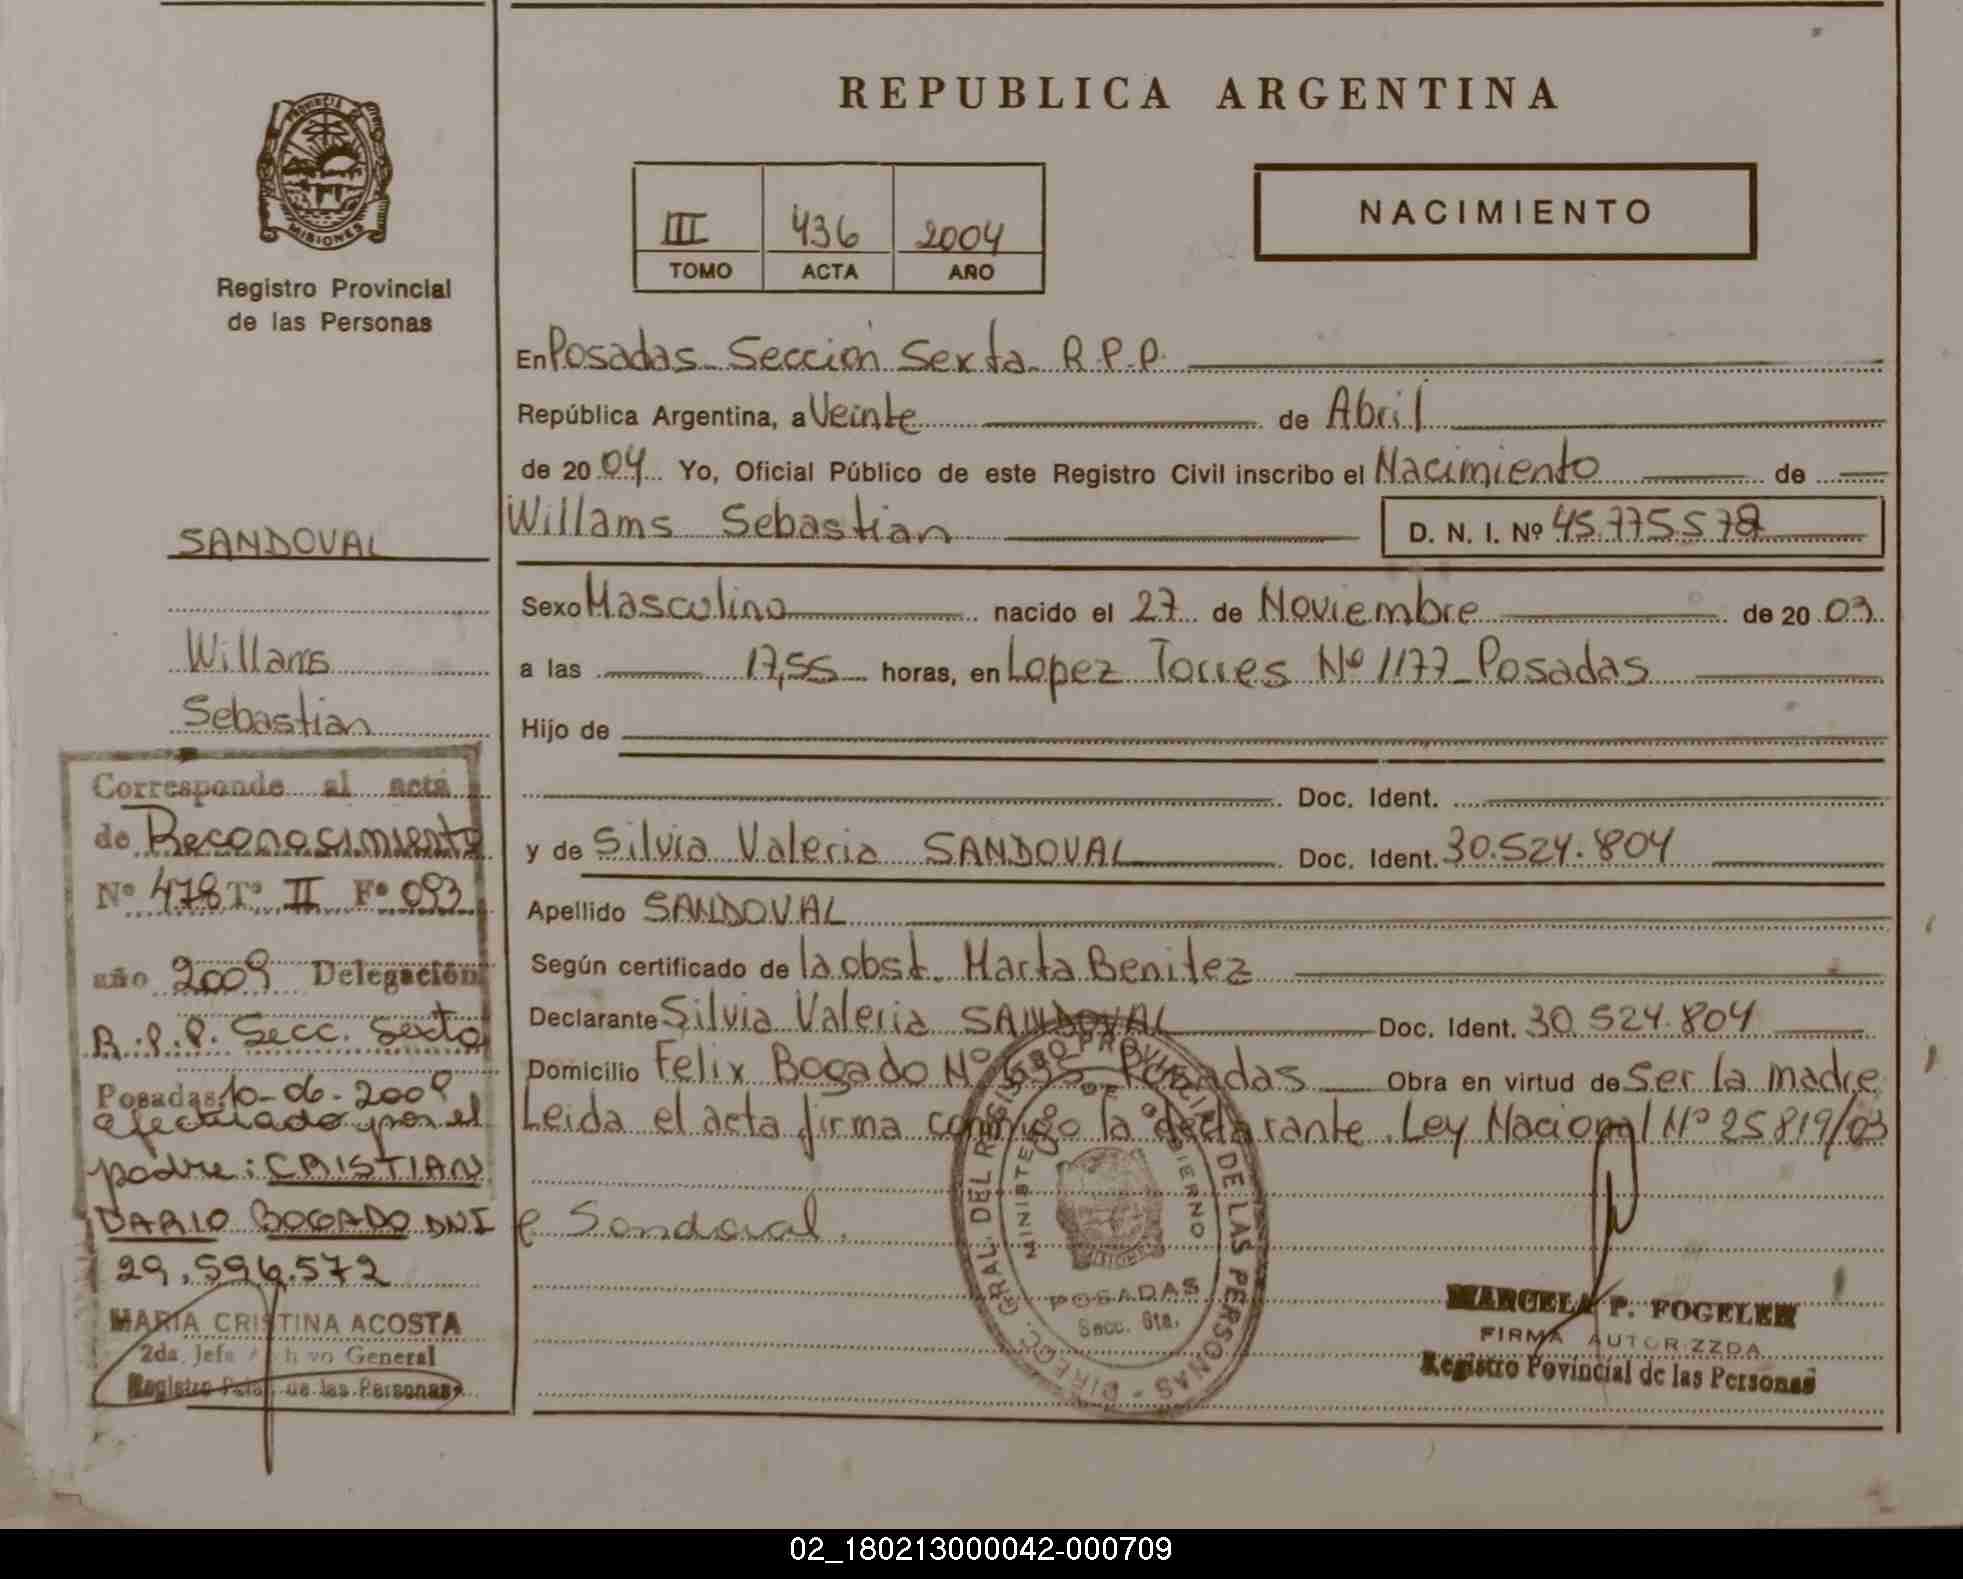 REPUBLICA ARGENTINA
NACIMIENTO
III 436 2004
TOMO ACTA AÑO
PROVINCIA DE MISIONES
Registro Provincial
de las Personas
SANDOVAL
Willams
Sebastian
Corresponde al acta
de Reconocimiento
Nº 478 Tº II Fº 093
año 2009 Delegación
R.P.P. Secc. Sexta
Posadas, 10-06-2009
efectuado por el
padre: CRISTIAN
DARIO BOGADO DNI
29.596.572
MARIA CRISTINA ACOSTA
2da. Jefa Archivo General
Registro de las Personas
En Posadas Sección Sexta R.P.P.
República Argentina, a Veinte de Abril
de 2004 Yo, Oficial Público de este Registro Civil inscribo el Nacimiento de
Willams Sebastian D. N. I. Nº 45.775.578
Sexo Masculino nacido el 27 de Noviembre de 2003
a las 17,55 horas, en Lopez Torres Nº 1177 Posadas
Hijo de
Doc. Ident.
y de Silvia Valeria SANDOVAL Doc. Ident. 30.524.804
Apellido SANDOVAL
Según certificado de la obst. Marta Benitez
Declarante Silvia Valeria SANDOVAL Doc. Ident. 30.524.804
Domicilio Felix Bogado Nº Posadas Obra en virtud de Ser la madre
Leida el acta firma conmigo la declarante. Ley Nacional Nº 25819/03
Sandoval.
DIRECC. GRAL. DEL REGISTRO PROVINCIAL DE LAS PERSONAS
MINISTERIO DE GOBIERNO
MISIONES
POSADAS
Secc. 6ta.
MARCELA P. FOGELER
FIRMA AUTORIZZDA
Registro Povincial de las Personas
02_180213000042-000709